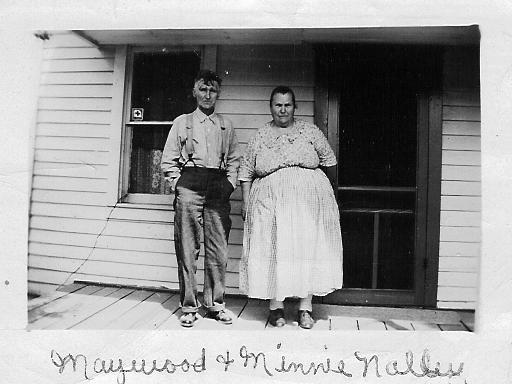 Maywood & Minnie Nalley